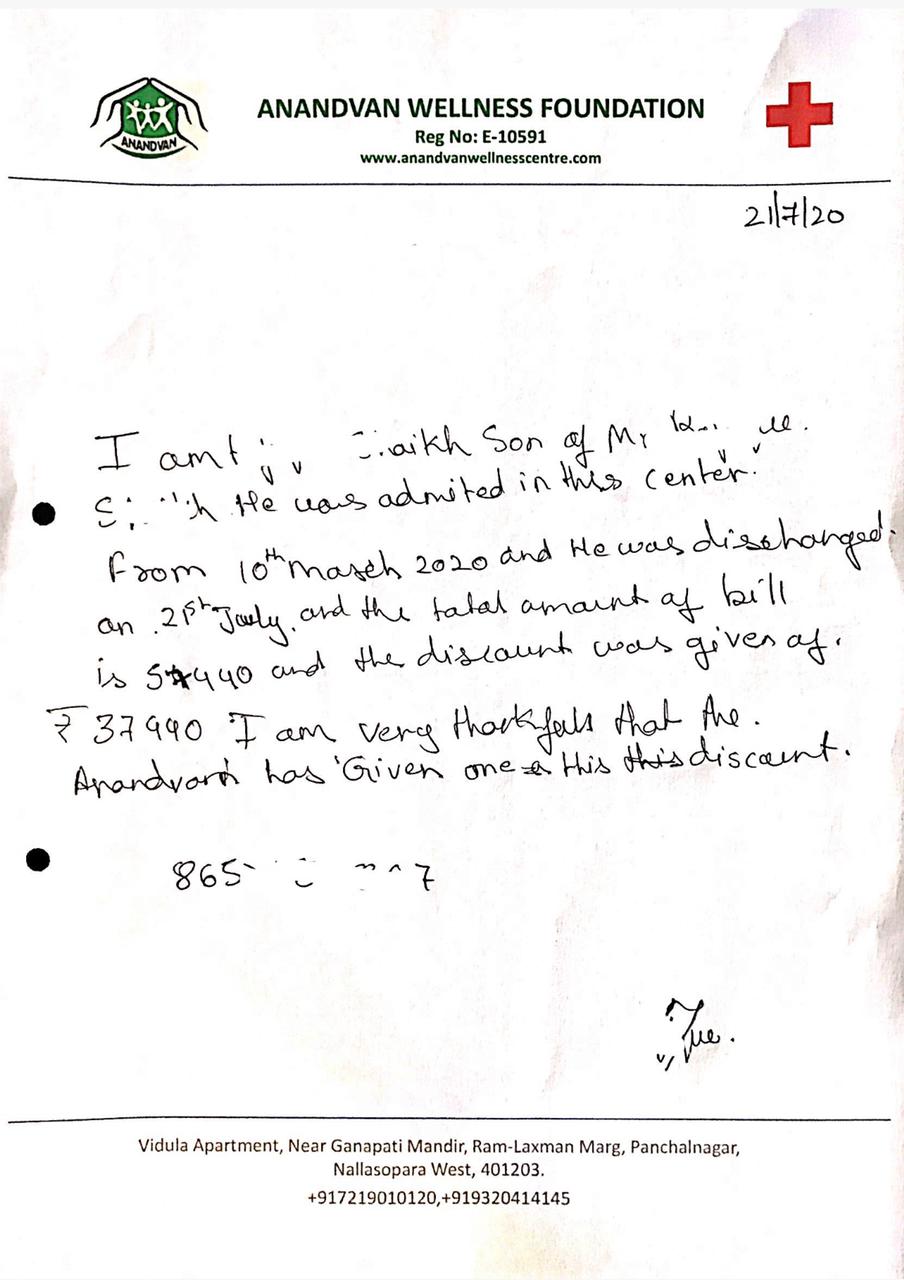 ANANDVAN
ANANDVAN WELLNESS FOUNDATION
Reg No: E-10591
www.anandvanwellnesscentre.com
21/7/20
I am Son of Mr
He was admited in this center.
From 10th March 2020 and He was discharged.
on 21st July, and the total amount of bill
is and the discount was given of.
₹ 37990 I am very thankfull that the.
has Given this this discount.
865 7
Vidula Apartment, Near Ganapati Mandir, Ram-Laxman Marg, Panchalnagar,
Nallasopara West, 401203.
+917219010120,+919320414145